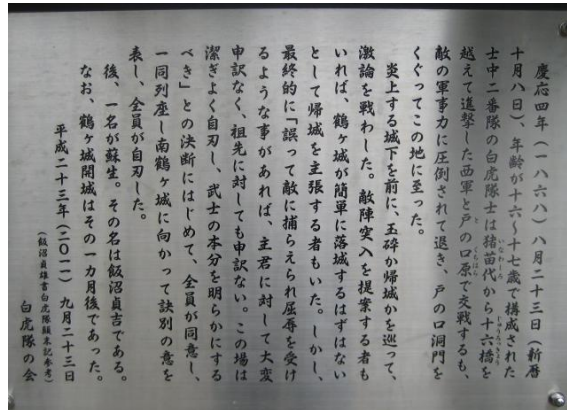 慶応四年(一八六八)八月二十三日(新暦
十月八日)、年齢が十六~十七歳で構成された
士中二番隊の白虎隊士は猪苗代から十六橋を
越えて進撃した西軍と戸の口原で交戦するも、
敵の軍事力に圧倒されて退き、戸の口洞門を
くぐってこの地に至った。
炎上する城下を前に、玉砕か帰城かを巡って、
激論を戦わした。敵陣突入を提案する者も
いれば、鶴ヶ城が簡単に落城するはずはない
として帰城を主張する者もいた。しかし、
最終的に「誤って敵に捕らえられ屈辱を受け
るような事があれば、主君に対して大変
申訳なく、祖先に対しても申訳ない。この場は
潔ぎよく自刃し、武士の本分を明らかにする
べき」との決断にはじめて、全員が同意し、
一同列座し南鶴ヶ城に向かって訣別の意を
表し、全員が自刃した。
後、一名が蘇生。その名は飯沼貞吉である。
なお、鶴ヶ城開城はその一カ月後であった。
平成二十三年(二〇一一) 九月二十三日
(飯沼貞雄書白虎隊顛末記参考)
白虎隊の会